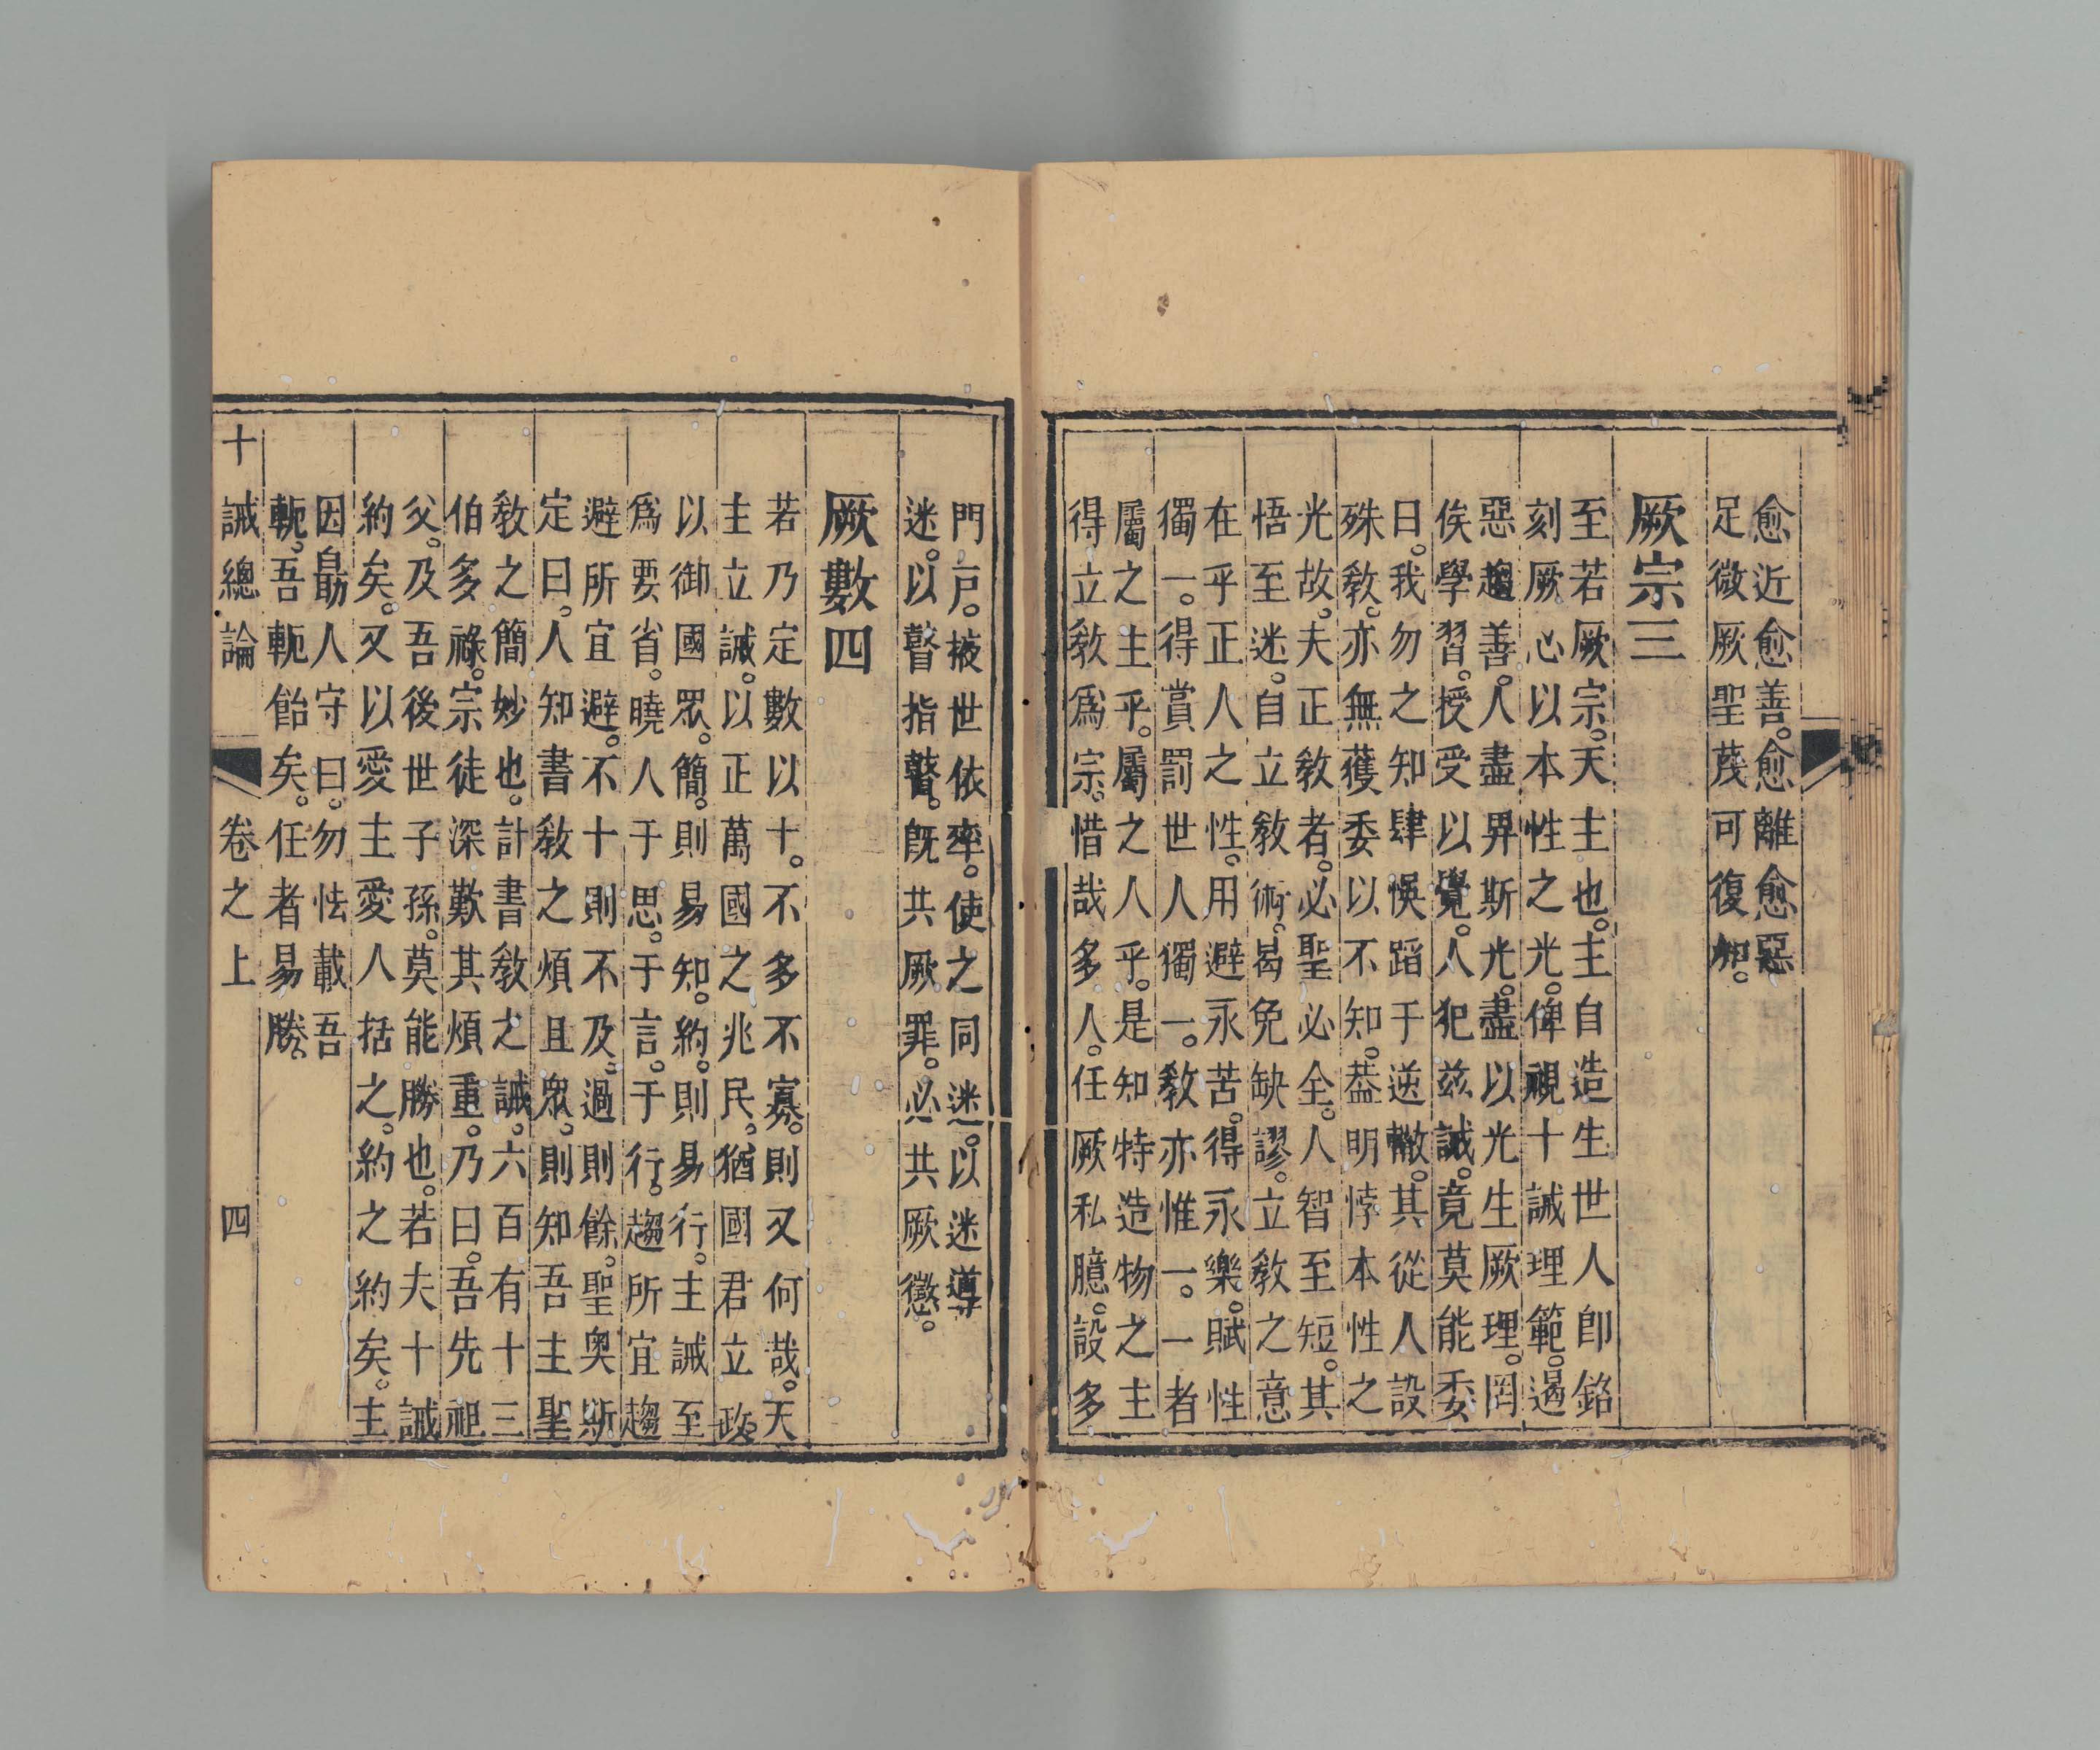 愈近愈善。愈離愈惡
足徵厥聖茂可復加。
厥宗三
至若厥宗。天主也。主自造生世人卽銘
刻厥心以本性之光。俾視十誡理範。遏
惡趨善。人盡畀斯光。盡以光生厥理。罔
俟學習。授受以覺。人犯兹誡。竟莫能委
曰。我勿之知肆悞蹈于逆轍。其從人設
殊教。亦無獲委以不知。葢明悖本性之
光故。夫正教者。必聖必全。人智至短。其
悟至迷。自立教術。曷免缺謬。立教之意
在乎正人之性。用避永苦。得永樂。賦性
獨一。得賞罰世人獨一。教亦惟一。一者
屬之主乎。屬之人乎。是知特造物之主
得立教爲宗。惜哉多人。任厥私臆。設多
門戸。掖世依率。使之同迷。以迷導
迷。以瞽指瞽。旣共厥罪。必共厥懲。
厥數四
若乃定數以十。不多不寡。則又何哉。天
主立誡。以正萬國之兆民。猶國君立政
以御國眾。簡。則易知。約。則易行。主誡至
爲要省。曉人于思。于言。于行。趨所宜趨
避所宜避。不十則不及。過則餘。聖奧斯
定曰。人知書教之煩且眾。則知吾主聖
教之簡妙也。計書教之誡。六百有十三
伯多祿。宗徒深歎其煩重。乃曰。吾先祖
父。及吾後世子孫。莫能勝也。若夫十誡
約矣。又以愛主愛人括之。約之約矣。主
因勗人守曰。勿怯載吾
軛。吾軛飴矣。任者易勝。
十誡總論 卷之上 四